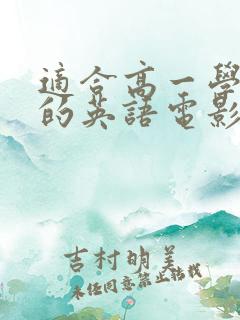 適合高一學
的英語電影
吉村明美
未經同意禁止转载